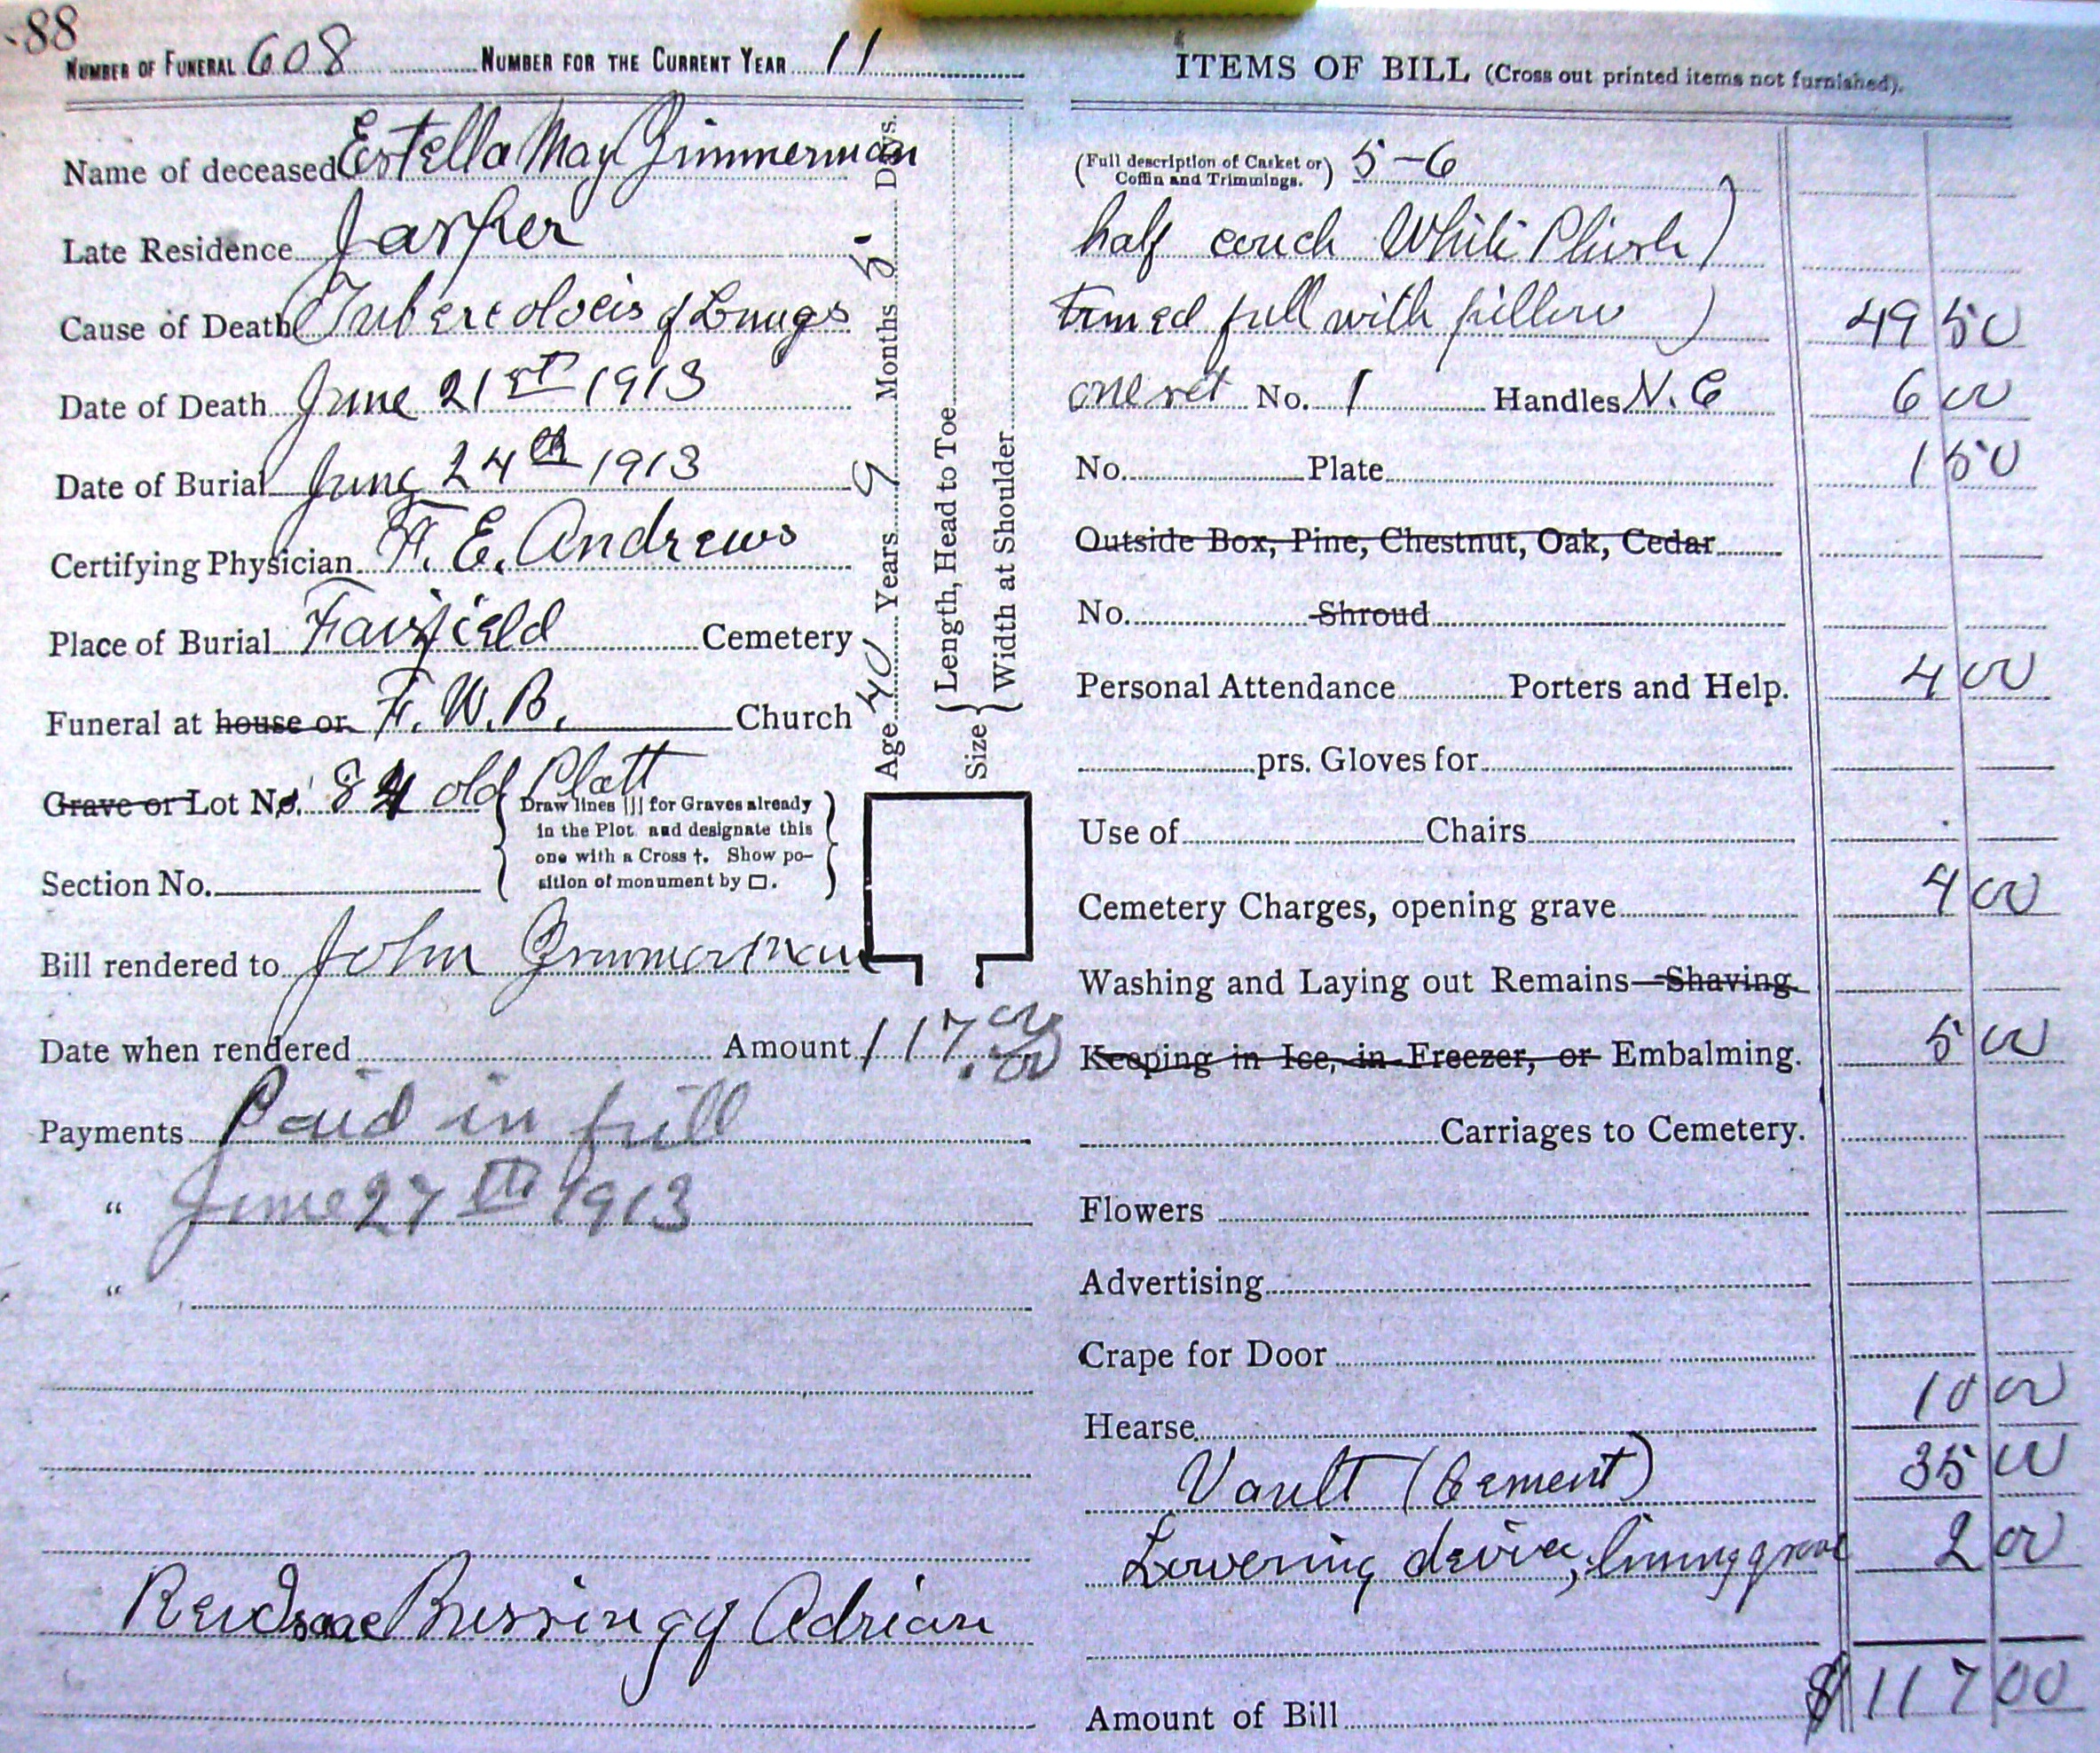 88
NUMBER OF FUNERAL 608 NUMBER FOR THE CURRENT YEAR 11
Name of deceased Estella May Zimmerman
Late Residence Jasper
Cause of Death Tuberculosis of Lungs
Date of Death June 21st 1913
Date of Burial June 24th 1913
Certifying Physician F. E. Andrews
Place of Burial Fairfield Cemetery
Funeral at house or F. W. B. Church
Grave or Lot No. 84 old Platt
(Draw lines ||| for Graves already
in the Plot and designate this
one with a Cross †. Show po-
sition of monument by □.)
Section No.
Bill rendered to John Zimmerman
Date when rendered Amount 117.00
Payments Paid in full
" June 27th 1913
"
Rev Isaac Bussing of Adrian
Age 40 Years 9 Months 5 Days.
Size { Length, Head to Toe
Width at Shoulder
ITEMS OF BILL (Cross out printed items not furnished).
(Full description of Casket or Coffin and Trimmings.) 5-6
half couch White Plush )
trimed full with pillow ) 49 50
one set No. 1 Handles N. C 6 00
No. Plate 1 50
Outside Box, Pine, Chestnut, Oak, Cedar
No. Shroud
Personal Attendance Porters and Help. 4 00
prs. Gloves for
Use of Chairs
Cemetery Charges, opening grave 4 00
Washing and Laying out Remains—Shaving
Keeping in Ice, in Freezer, or Embalming. 5 00
Carriages to Cemetery.
Flowers
Advertising
Crape for Door
Hearse 10 00
Vault (Cement) 35 00
Lowering device, lining grave 2 00
Amount of Bill $117 00